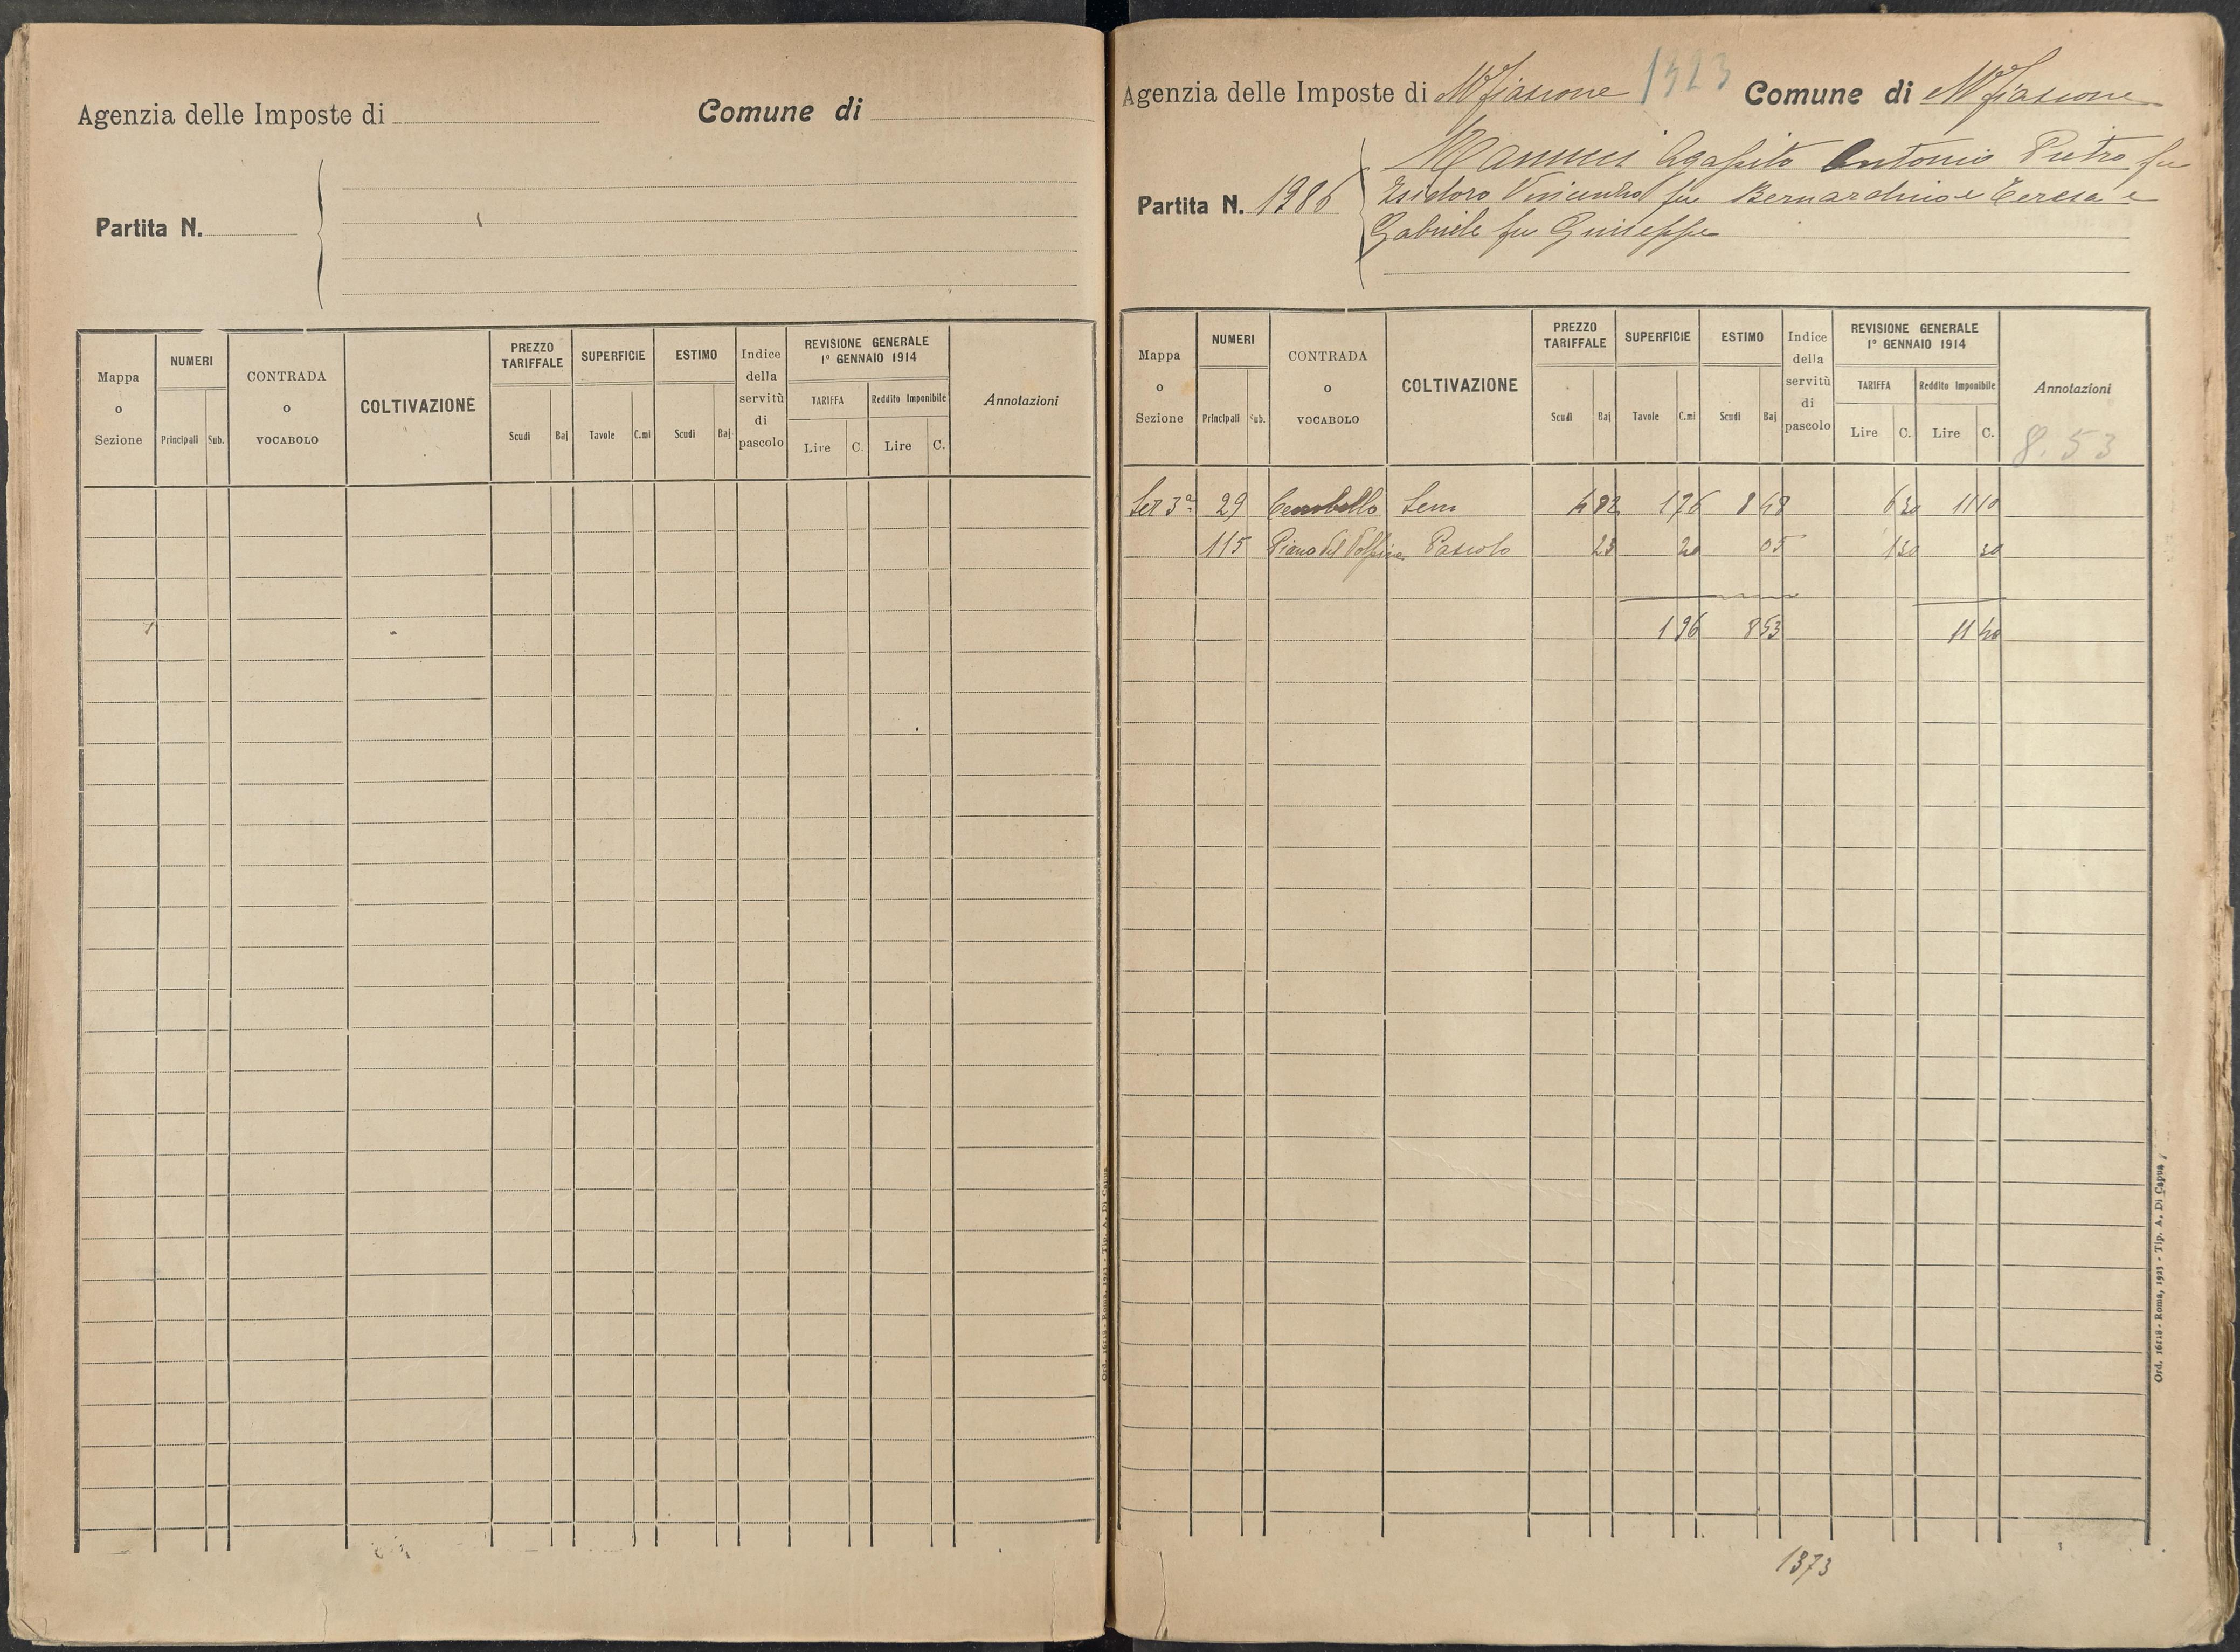 Agenzia delle Imposte di
Comune di
Partita N.
Mappa o Sezione
NUMERI
Principali
Sub.
CONTRADA o VOCABOLO
COLTIVAZIONE
PREZZO TARIFFALE
Scudi
Baj
SUPERFICIE
Tavole
C.mi
ESTIMO
Scudi
Baj
Indice della servitù di pascolo
REVISIONE GENERALE
1° GENNAIO 1914
TARIFFA
Reddito Imponibile
Lire
C.
Lire
C.
Annotazioni
Ord. 16218 - Roma, 1923 - Tip. A. Di Capua
Agenzia delle Imposte di Mfiascone
1323
Comune di Mfiascone
Partita N. 1986
Mannci Agapito Antonio Pietro fu
Isidoro Vincenzo fu Bernardino e Teresa e
Gabriele fu Giuseppe
Mappa o Sezione
NUMERI
Principali
Sub.
CONTRADA o VOCABOLO
COLTIVAZIONE
PREZZO TARIFFALE
Scudi
Baj
SUPERFICIE
Tavole
C.mi
ESTIMO
Scudi
Baj
Indice della servitù di pascolo
REVISIONE GENERALE
1° GENNAIO 1914
TARIFFA
Reddito Imponibile
Lire
C.
Lire
C.
Annotazioni
8.53
Sez 3ª 29 Sem 4 82 1 76 8 48 6 30 11 10
115 Piano del Pascolo 23 20 05 1 30 30
1 96 8 53 11 40
1373
Ord. 16218 - Roma, 1923 - Tip. A. Di Capua